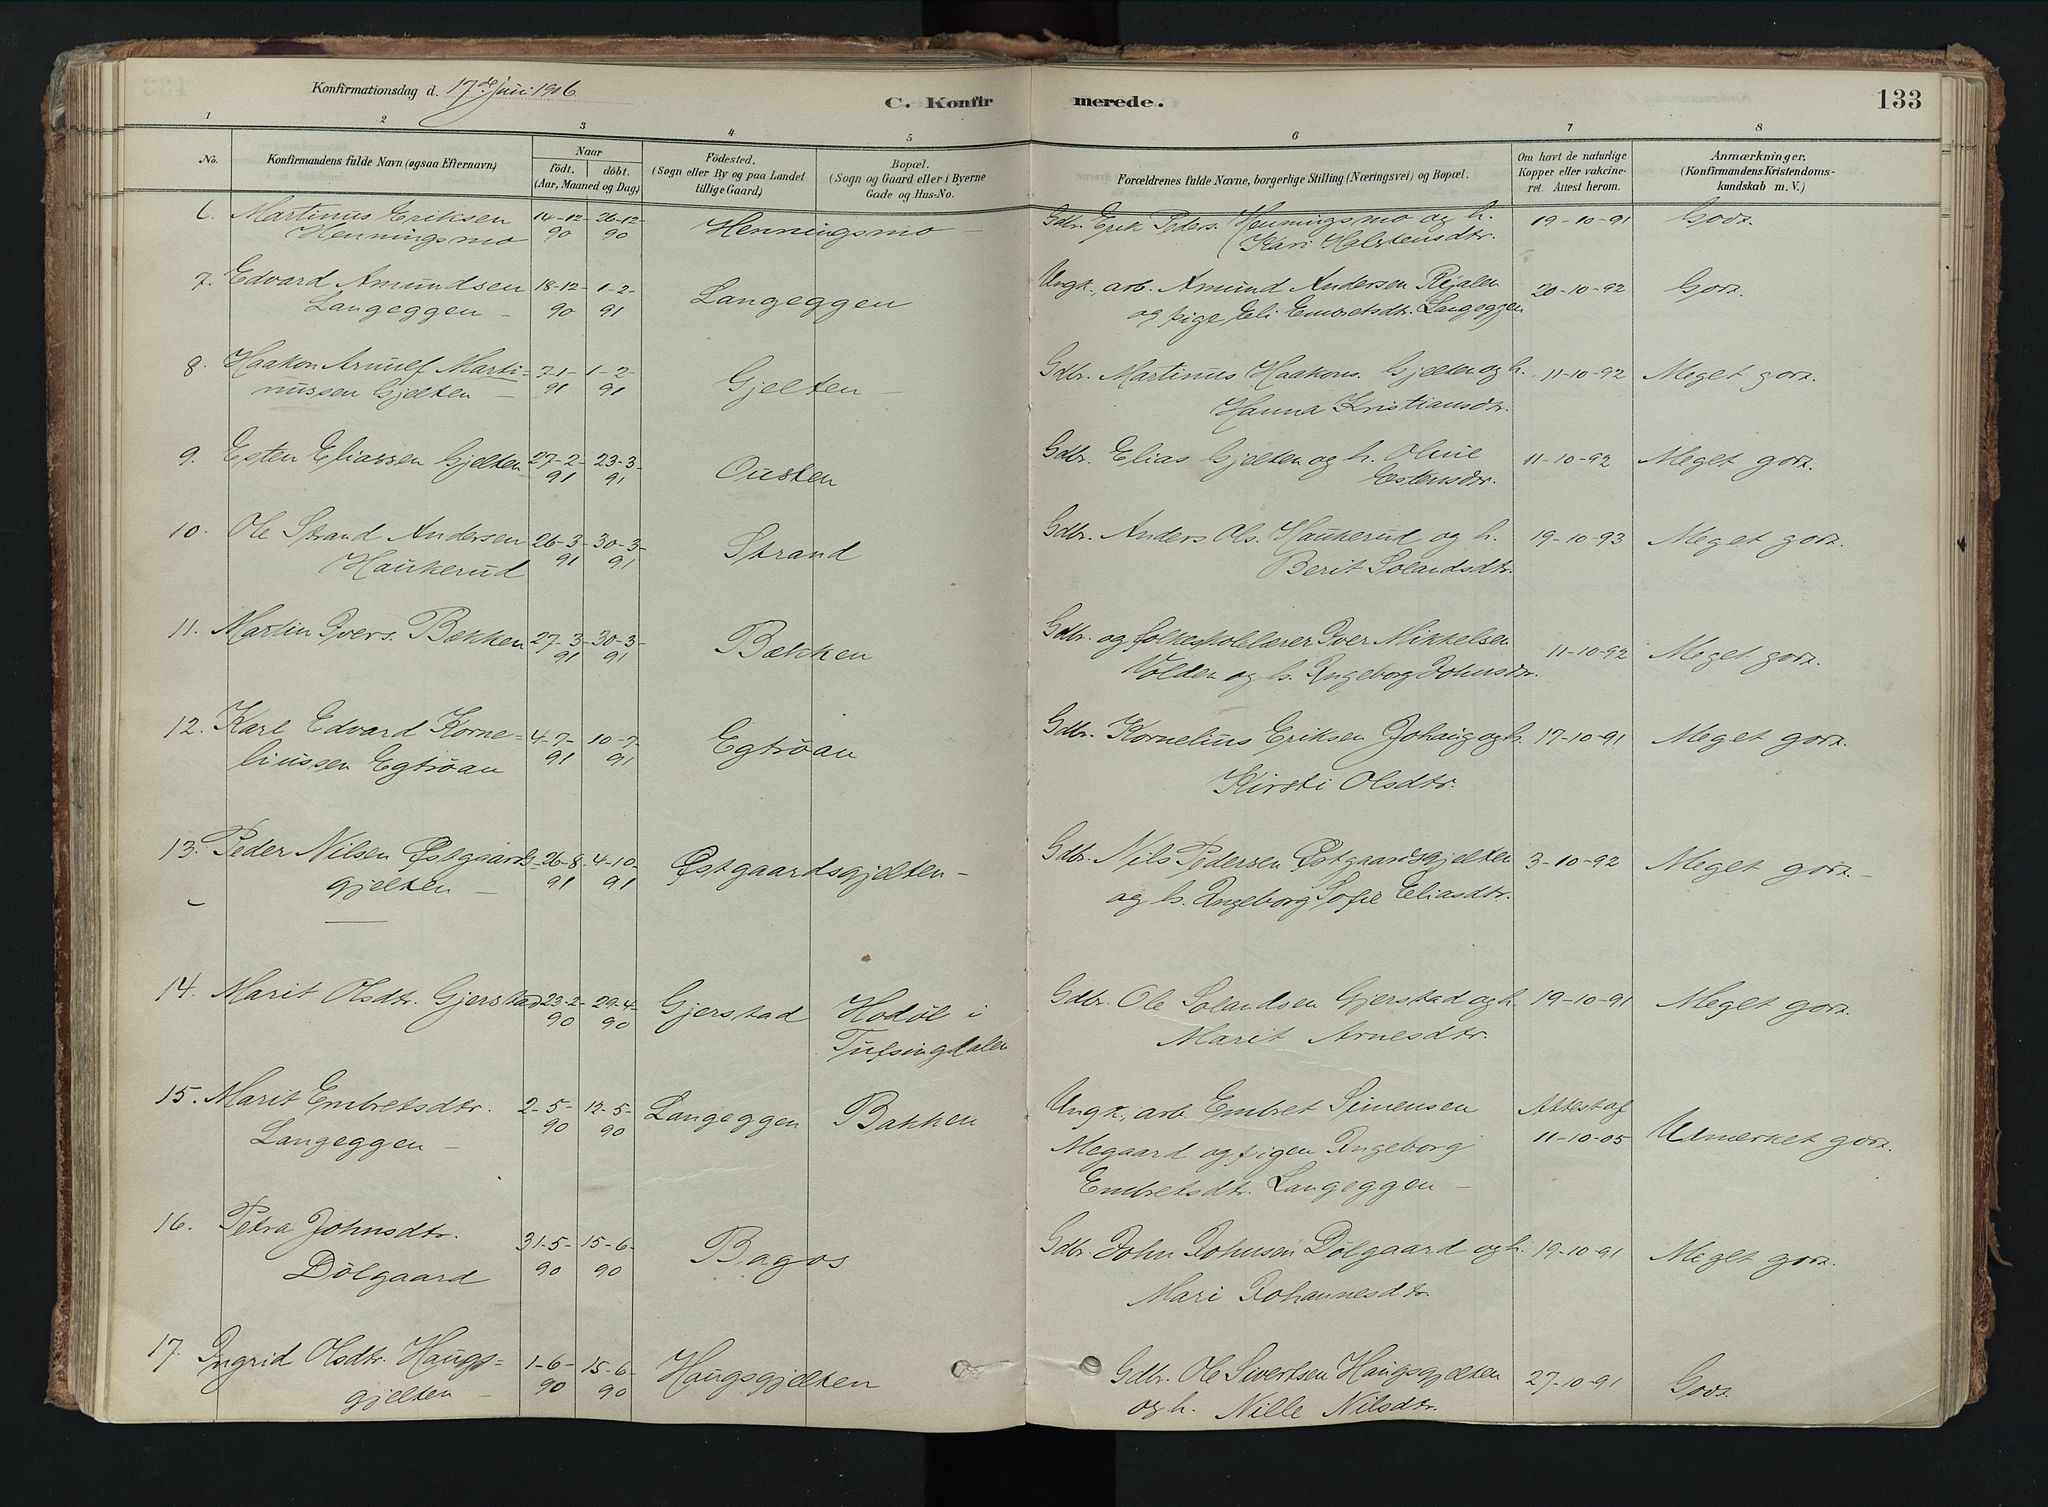 Konfirmationsdag d. 17de juni 1906
C. Konfirmerede.
133
1 2 3 4 5 6 7 8
No. Konfirmandens fulde Navn (ogsaa Efternavn) Naar födt. döbt. (Aar, Maaned og Dag) Födested. (Sogn eller By og paa Landet tillige Gaard) Bopæl. (Sogn og Gaard eller i Byerne Gade og Hus-No. Forældrenes fulde Navne, borgerlige Stilling (Næringsvei) og Bopæl. Om havt de naturlige Kopper eller vakcineret. Attest herom. Anmærkninger, (Konfirmandens Kristendomskundskab m. V.)
6. Martinus Eriksen 14-12- 26-12- Henningsmo - Gdbr. Erik Peders. Henningsmo og h. 19-10-91 Godt.
Henningsmo 90 90 Kari Halstensdtr.
7. Edvard Amundsen 18-12- 1-2- Langeggen Ungk., arb. Amund Andersen Rejalen 20-10-92 Godt.
Langeggen - 90 91 og pige Eli Embretsdtr. Langeggen
8. Haakon Arnulf Marti= 7-1- 1-2- Gjelten - Gdbr. Martinus Haakons. Gjelten og h. 11-10-92 Meget godt.
nussen Gjelten - 91 91 Hanna Kristiansdtr.
9. Esten Eliassen Gjelten 27-2- 23-3- Ousten Gdbr. Elias Gjelten og h. Oline 11-10-92 Meget godt.
91 91 Estensdtr.
10. Ole Strand Andersen 26-3- 30-3- Strand Gdbr. Anders Ols. Haukerud og h. 19-10-93 Meget godt.
Haukerud 91 91 Berit Solandsdtr.
11. Martin Ivers. Bækken 27-3- 30-3- Bækken Gdbr. og folkeskolelærer Iver Mikkelsen 11-10-92 Meget godt.
91 91 Volden og h. Ingeborg Johnsdtr.
12. Karl Edvard Korne= 4-7- 10-7- Egtrøan Gdbr. Kornelius Eriksen Johaug og h. 17-10-91 Meget godt.
liussen Egtrøan 91 91 Kirsti Olsdtr.
13. Peder Nilsen Østgaards= 26-8- 4-10- Østgaardsgjelten - Gdbr. Nils Pedersen Østgaardsgjelten 3-10-92 Meget godt -
gjelten - 91 91 og h. Ingeborg Sofie Eliasdtr.
14. Marit Olsdtr. Gjerstad 23-2- 29-4- Gjerstad Hodøl i Gdbr. Ole Solandsen Gjerstad og h. 19-10-91 Meget godt.
90 90 Tufsingdalen Marit Arnesdtr.
15. Marit Embretsdtr. 2-5- 12-5- Langeggen Bakken Ungk., arb. Embret Simensen Attest af
Langeggen - 90 90 Megaard og pigen Ingeborg 11-10-05 Udmerket godt.
Embretsdtr. Langeggen -
16. Petra Johnsdtr. 31-5- 15-6- Bagos Gdbr. John Johnsen Dølgaard og h. 19-10-91 Meget godt.
Dølgaard 90 90 Mari Johannesdtr.
17. Ingrid Olsdtr. Haugs= 1-6- 15-6- Haugsgjelten Gdbr. Ole Sivertsen Haugsgjelten 27-10-91 Godt
gjelten - 90 90 og h. Nille Nilsdtr.